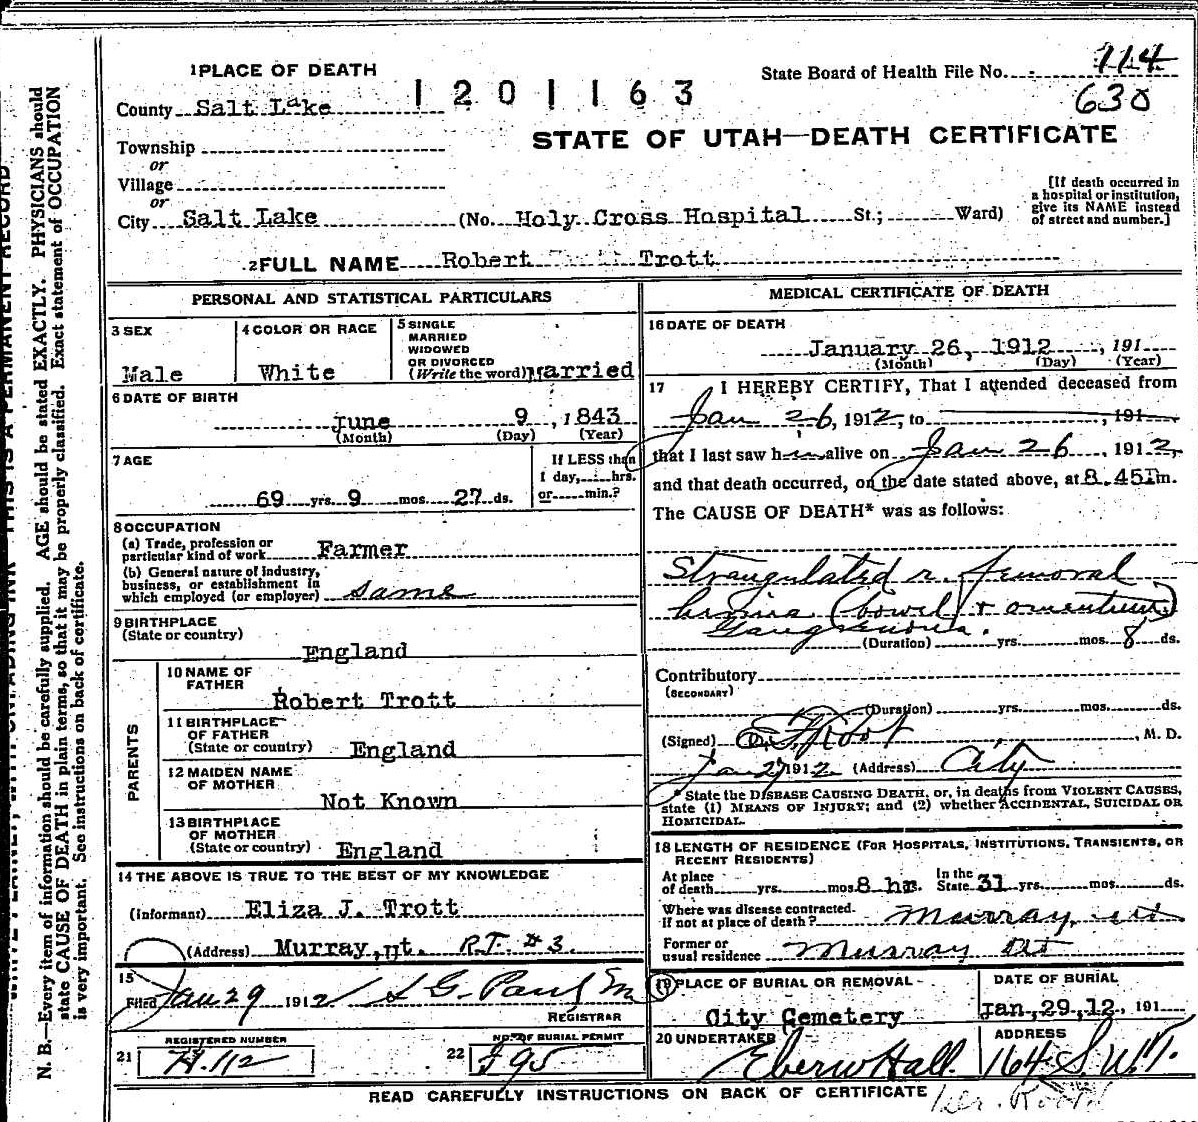 1 PLACE OF DEATH
1201163
State Board of Health File No. 114
630
County Salt Lake
STATE OF UTAH—DEATH CERTIFICATE
Township
or
Village
or
City Salt Lake (No. Holy Cross Hospital St.; Ward)
[If death occurred in
a hospital or institution,
give its NAME instead
of street and number.]
2 FULL NAME Robert Trott
PERSONAL AND STATISTICAL PARTICULARS
3 SEX
Male
4 COLOR OR RACE
White
5 SINGLE
MARRIED
WIDOWED
OR DIVORCED
(Write the word) Married
6 DATE OF BIRTH
June 9, 1843
(Month) (Day) (Year)
7 AGE
69 yrs. 9 mos. 27 ds.
If LESS than
1 day, hrs.
or min.?
8 OCCUPATION
(a) Trade, profession or
particular kind of work Farmer
(b) General nature of industry,
business, or establishment in
which employed (or employer) same
9 BIRTHPLACE
(State or country)
England
PARENTS
10 NAME OF
FATHER
Robert Trott
11 BIRTHPLACE
OF FATHER
(State or country) England
12 MAIDEN NAME
OF MOTHER
Not Known
13 BIRTHPLACE
OF MOTHER
(State or country) England
14 THE ABOVE IS TRUE TO THE BEST OF MY KNOWLEDGE
(Informant) Eliza J. Trott
(Address) Murray, Ut. R.T. #3.
15
Filed Jan 29 1912
REGISTRAR
21 REGISTERED NUMBER
H.112
22 NO. OF BURIAL PERMIT
MEDICAL CERTIFICATE OF DEATH
16 DATE OF DEATH
January 26, 1912, 191
(Month) (Day) (Year)
17 I HEREBY CERTIFY, That I attended deceased from
Jan 26, 1912, to , 191
that I last saw him alive on Jan 26, 1912,
and that death occurred, on the date stated above, at 8.45 m.
The CAUSE OF DEATH* was as follows:
Strangulated r. femoral
hernia (bowel + omentum)
Gangrenous.
(Duration) yrs. mos. 8 ds.
Contributory
(SECONDARY)
(Duration) yrs. mos. ds.
(Signed) Root, M. D.
Jan 27 1912 (Address) City
* State the DISEASE CAUSING DEATH, or, in deaths from VIOLENT CAUSES,
state (1) MEANS OF INJURY; and (2) whether ACCIDENTAL, SUICIDAL OR
HOMICIDAL.
18 LENGTH OF RESIDENCE (FOR HOSPITALS, INSTITUTIONS, TRANSIENTS, OR
RECENT RESIDENTS)
At place
of death yrs. mos. 8 hrs.
In the
State 31 yrs. mos. ds.
Where was disease contracted.
If not at place of death? Murray, Ut
Former or
usual residence Murray Ut
19 PLACE OF BURIAL OR REMOVAL
City Cemetery
DATE OF BURIAL
Jan, 29, 12, 191
20 UNDERTAKER
Eber W Hall.
ADDRESS
164 S. W.T.
READ CAREFULLY INSTRUCTIONS ON BACK OF CERTIFICATE
N. B.—Every item of information should be carefully supplied. AGE should be stated EXACTLY. PHYSICIANS should
state CAUSE OF DEATH in plain terms, so that it may be properly classified. Exact statement of OCCUPATION
is very important. See instructions on back of certificate.
THIS IS A PERMANENT RECORD